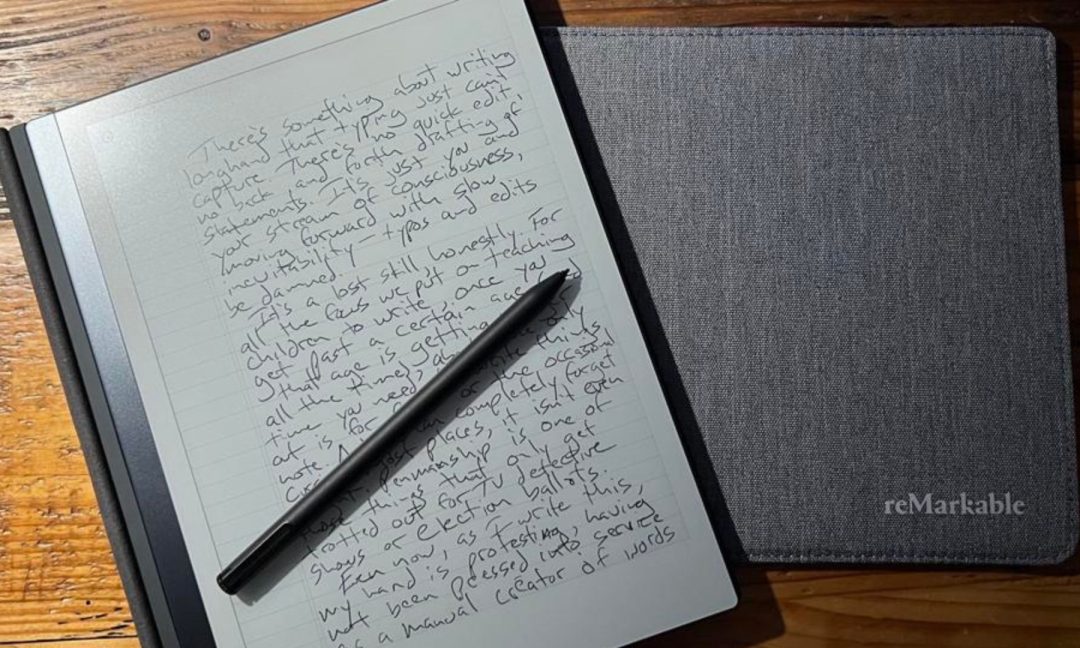 There's something about writing
longhand that typing just can't
capture. There's no quick edit,
no back and forth drafting of
statements. It's just you and
your stream of consciousness,
moving forward with slow
inevitability—typos and edits
be damned.
It's a lost still, honestly. For
all the focus we put on teaching
children to write, once you
get past a certain age
that age is getting
all the time),
time you need to write things
out is for or the occasional
note. A can completely forget
most places, it isn't even
Penmanship is one of
those things that only get
trotted out for TV detective
shows or election ballots.
Even now, as I write this,
my hand is protesting, having
not been pressed into service
as a manual creator of words
reMarkable